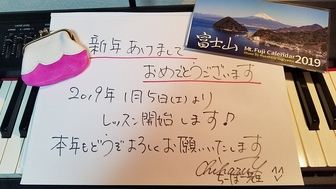 新年あけまして
おめでとうございます
2019年 1月5日(土)より
レッスン開始します♪
本年もどうぞよろしくお願いいたします
富士山
Mt. Fuji Calendar
2019